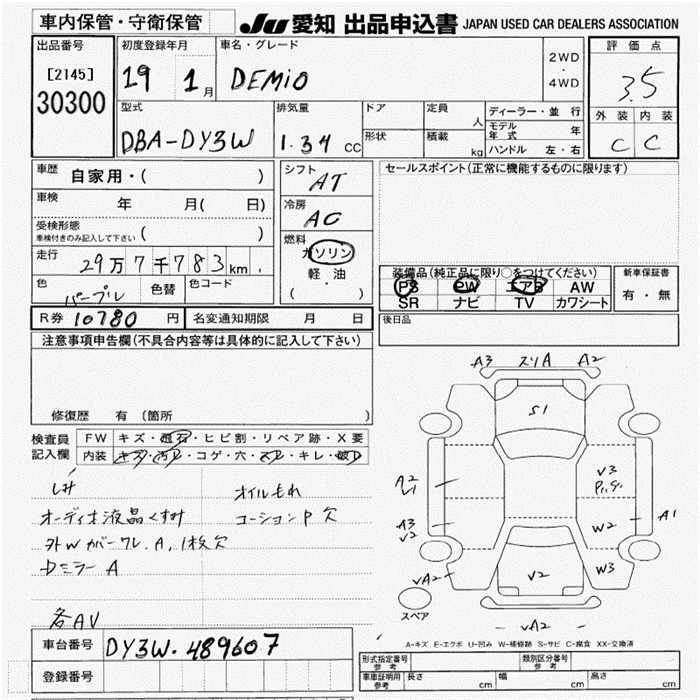 車内保管・守衛保管
JU 愛知 出品申込書 JAPAN USED CAR DEALERS ASSOCIATION
出品番号
[2145]
30300
初度登録年月
19 1月
車名・グレード
DEMIO
2WD
・
4WD
評価点
3.5
外装 内装
C C
型式
DBA-DY3W
排気量
1.34 CC
ドア
形状
定員 人
積載 kg
ディーラー・並行
モデル年式 年
ハンドル 左・右
車歴 自家用・( )
車検 年 月( 日)
受検形態
車検付きのみ記入して下さい ( )
走行 29万7千783km
色 パープル
色替
色コード
シフト
AT
冷房
AC
燃料
ガソリン
軽油
( ・ )
セールスポイント(正常に機能するものに限ります)
装備品(純正品に限り○をつけてください)
PS PW エアB AW
SR ナビ TV カワシート
新車保証書
有・無
R券 10780 円
名変通知期限 月 日
後日品
注意事項申告欄(不具合内容等は具体的に記入して下さい)
修復歴 有(箇所
検査員
記入欄
FW キズ・飛石・ヒビ割・リペア跡・X要
内装 キズ・汚レ・コゲ・穴・スレ・キレ・破レ
しみ オイルもれ
オーディオ液晶くすみ コーションP欠
外Wカバーワレ.A,1枚欠
Dミラー A
各AV
A3 スリA A2
S1
A2
L1
V3
A3
V2
W2
A1
VA2
V2
W3
VA2
スペア
A-キズ E-エクボ U-凹み W-補修跡 S-サビ C-腐食 XX-交換済
車台番号 DY3W-489607
登録番号
形式指定番号
参考
類別区分番号
参考
車庫証明用
参考
長さ cm
幅 cm
高さ cm